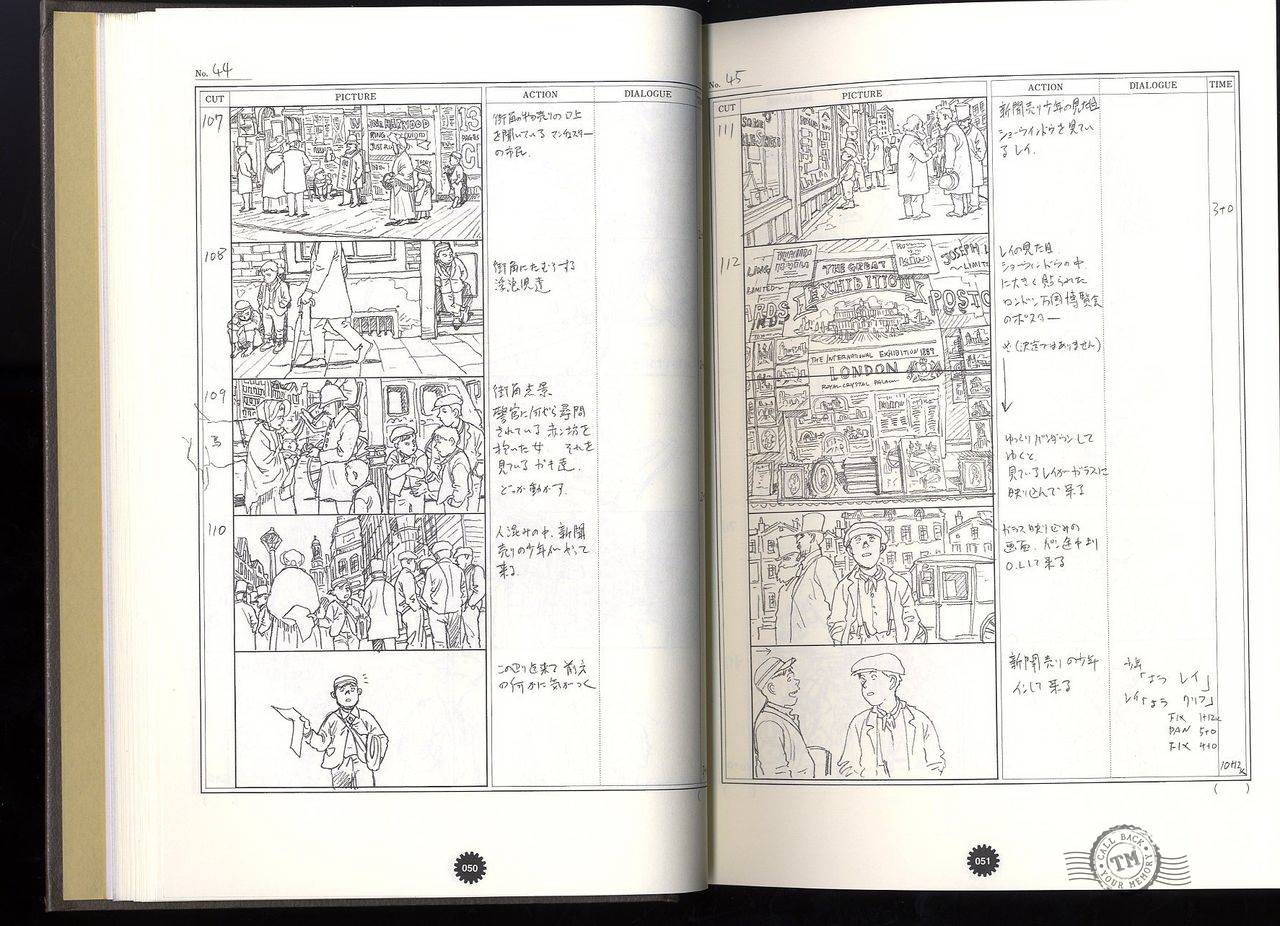 No. 44
CUT
PICTURE
ACTION
DIALOGUE
107
街角の物売りの口上
を聞いている マンチェスター
の市民.
108
街角にたむろする
浮浪児達
109
街角点景
警官に何やら尋問
されている 赤ン坊を
抱いた女. それを
見ている ガキ達.
どっか動かす.
110
人混みの中、新聞
売りの少年がやって
来る.
の何かに気がつく
050
No. 45
CUT
PICTURE
ACTION
DIALOGUE
TIME
111
新聞売り少年の見た目
ショーウインドウを見てい
るレイ.
3+0
112
THE GREAT
EXHIBITION
JOSEPH
LIMIT
POSTC
THE INTERNATIONAL EXHIBITION 1889
LONDON
ROYAL CRYSTAL PALACE
レイの見た目
ショーウィンドウの中
に大きく貼られた
ロンドン万国博覧会
のポスター
(決定ではありません)
ゆっくりパンダウンして
ゆくと
見ているレイがガラスに
映り込んで来る
ガラス映り込みの
画面. パン途中より
O.Lして来る
新聞売りの少年
インして来る
少年
「よう レイ」
レイ「よう クリフ」
FIX 1+12
PAN 5+0
FIX 4+0
10+12
( )
051
CALL BACK
TM
YOUR MEMORY